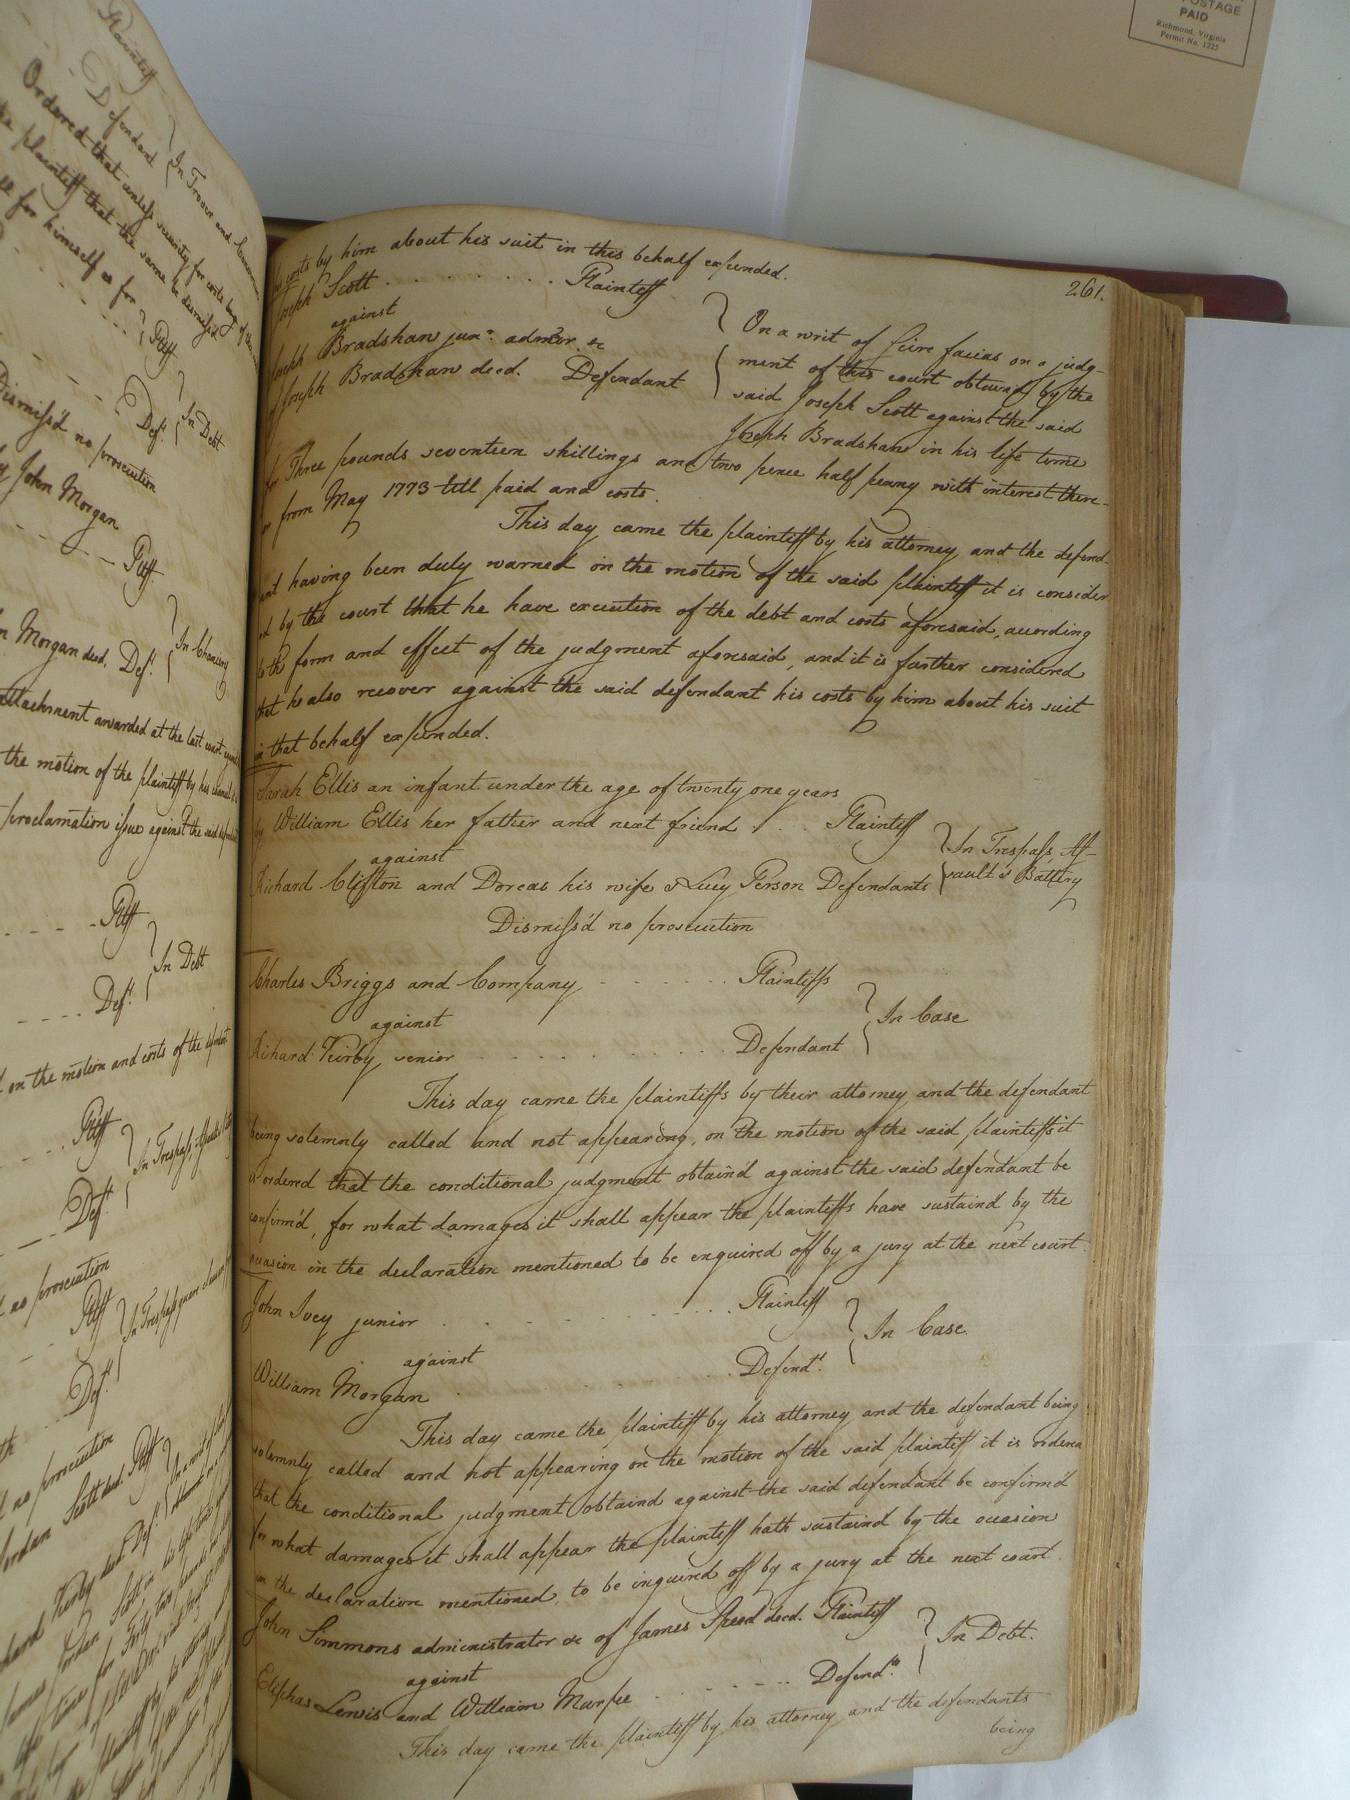 POSTAGE
PAID
Richmond, Virginia
Permit No. 1225
Plaintiff
Defendant } In Trover and
Ordered that unless security for costs
the plaintiff that the same be dismiss'd
for himself as for
Pltff
Deft. } In Debt
Dismiss'd no prosecution
John Morgan
Pltff
Morgan decd. Deft. } In Chancery
attachment awarded at the last court
the motion of the plaintiff by his
proclamation issue against the said
Pltff
Deft. } In Debt
on the motion and costs of the defendant
Pltff
Deft. } In Trespass,
no prosecution
Pltff
Deft. } In Trespass
no prosecution
Jordan Scott decd. Pltff
Kirby decd. Deft.
261.
costs by him about his suit in this behalf expended.
Joseph Scott . . . . . . . . . Plaintiff
against
Joseph Bradshaw junr. admor. &c
of Joseph Bradshaw decd. Defendant
On a writ of scire facias on a judg-
ment of this court obtained by the
said Joseph Scott against the said
Joseph Bradshaw in his life time
for Three pounds seventeen shillings and two pence half penny with interest there-
on from May 1773 till paid and costs.
This day came the plaintiff by his attorney, and the defend-
ant having been duly warned on the motion of the said plaintiff it is consider
ed by the court that he have execution of the debt and costs aforesaid, acording
to the form and effect of the judgment aforesaid, and it is further considered
that he also recover against the said defendant his costs by him about his suit
in that behalf expended.
Sarah Ellis an infant under the age of twenty one years
by William Ellis her father and next friend . . . Plaintiff
against
Richard Clifton and Dorcas his wife & Lucy Person Defendants
In Trespass, As-
sault & Battery
Dismiss'd no prosecution
Charles Briggs and Company . . . . . . Plaintiffs
against
Richard Kirby senior . . . . . . . . . Defendant
In Case
This day came the plaintiffs by their attorney and the defendant
being solemnly called and not appearing, on the motion of the said plaintiffs it
is ordered that the conditional judgment obtain'd against the said defendant be
confirm'd, for what damages it shall appear the plaintiffs have sustain'd by the
occasion in the declaration mentioned to be enquired off by a jury at the next court.
John Ivey junior . . . . . . . . Plaintiff
against
William Morgan . . . . . . . . Defendt.
In Case.
This day came the plaintiff by his attorney and the defendant being
solemnly called and not appearing on the motion of the said plaintiff it is orderd
that the conditional judgment obtaind against the said defendant be confirm'd
for what damages it shall appear the plaintiff hath sustaind by the occasion
in the declaration mentioned, to be inquired off by a jury at the next court.
John Simmons administrator &c of James Speed decd. Plaintiff
against
Eliphas Lewis and William Murfee . . . . . . . Defendts.
In Debt.
This day came the plaintiff by his attorney and the defendants
being